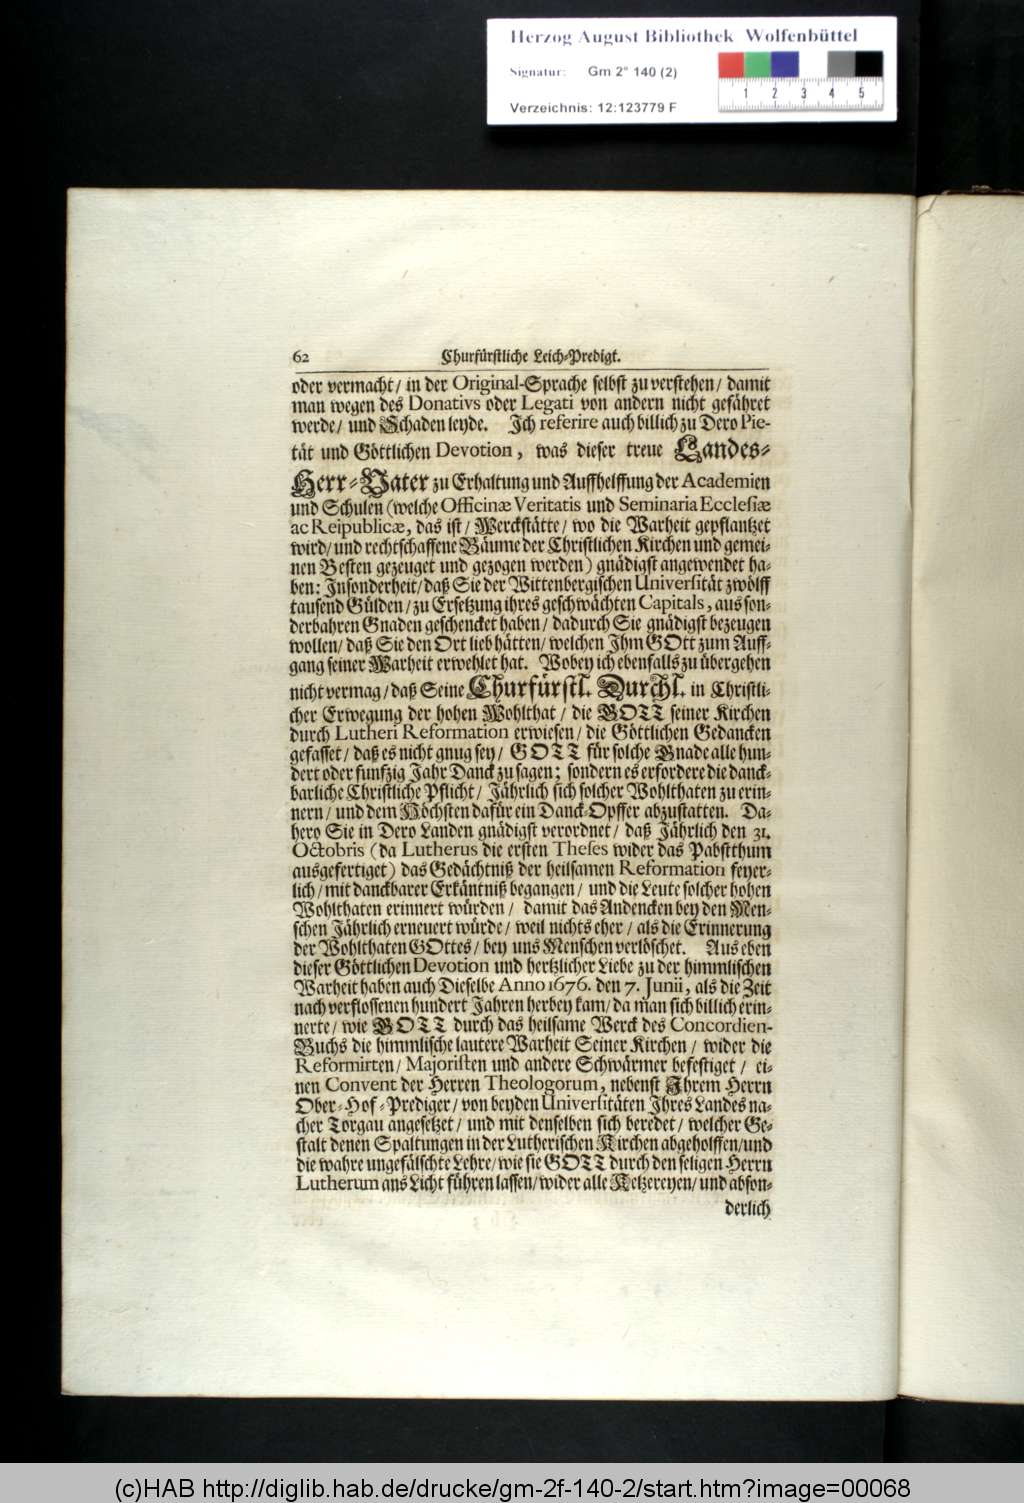 Herzog August Bibliothek Wolfenbüttel
Signatur: Gm 2° 140 (2)
1 2 3 4 5
Verzeichnis: 12:123779 F
62 Churfürstliche Leich-Predigt.
oder vermacht/ in der Original-Sprache selbst zu verstehen/ damit
man wegen des Donativs oder Legati von andern nicht gefähret
werde/ und Schaden leyde. Ich referire auch billich zu Dero Pie-
tät und Göttlichen Devotion, was dieser treue Landes-
Herr-Vater zu Erhaltung und Auffhelffung der Academien
und Schulen (welche Officinæ Veritatis und Seminaria Ecclesiæ
ac Reipublicæ, das ist/ Werckstätte/ wo die Warheit gepflantzet
wird/ und rechtschaffene Bäume der Christlichen Kirchen und gemei-
nen Besten gezeuget und gezogen werden) gnädigst angewendet ha-
ben: Insonderheit/ daß Sie der Wittenbergischen Universität zwölff
tausend Gülden/ zu Ersetzung ihres geschwächten Capitals, aus son-
derbahren Gnaden geschencket haben/ dadurch Sie gnädigst bezeugen
wollen/ daß Sie den Ort lieb hätten/ welchen Ihm GOtt zum Auff-
gang seiner Warheit erwehlet hat. Wobey ich ebenfalls zu übergehen
nicht vermag/ daß Seine Churfürstl. Durchl. in Christli-
cher Erwegung der hohen Wohlthat/ die GOTT seiner Kirchen
durch Lutheri Reformation erwiesen/ die Göttlichen Gedancken
gefasset/ daß es nicht gnug sey/ GOTT für solche Gnade alle hun-
dert oder funfzig Jahr Danck zu sagen; sondern es erfordere die danck-
barliche Christliche Pflicht/ Jährlich sich solcher Wohlthaten zu erin-
nern/ und dem Höchsten dafür ein Danck-Opffer abzustatten. Da-
hero Sie in Dero Landen gnädigst verordnet/ daß Jährlich den 31.
Octobris (da Lutherus die ersten Theses wider das Pabstthum
ausgefertiget) das Gedächtniß der heilsamen Reformation feyer-
lich/ mit danckbarer Erkäntniß begangen/ und die Leute solcher hohen
Wohlthaten erinnert würden/ damit das Andencken bey den Men-
schen Jährlich erneuert würde/ weil nichts eher/ als die Erinnerung
der Wohlthaten GOttes/ bey uns Menschen verlöschet. Aus eben
dieser Göttlichen Devotion und hertzlicher Liebe zu der himmlischen
Warheit haben auch Dieselbe Anno 1676. den 7. Junii, als die Zeit
nach verflossenen hundert Jahren herbey kam/ da man sich billich erin-
nerte/ wie GOTT durch das heilsame Werck des Concordien-
Buchs die himmlische lautere Warheit Seiner Kirchen/ wider die
Reformirten/ Majoristen und andere Schwärmer befestiget/ ei-
nen Convent der Herren Theologorum, nebenst Ihrem Herrn
Ober-Hof-Prediger/ von beyden Universitäten Ihres Landes na-
cher Torgau angesetzet/ und mit denselben sich beredet/ welcher Ge-
stalt denen Spaltungen in der Lutherischen Kirchen abgeholffen/ und
die wahre ungefälschte Lehre/ wie sie GOTT durch den seligen Herrn
Lutherum ans Licht führen lassen/ wider alle Ketzereyen/ und abson-
derlich
(c)HAB http://diglib.hab.de/drucke/gm-2f-140-2/start.htm?image=00068